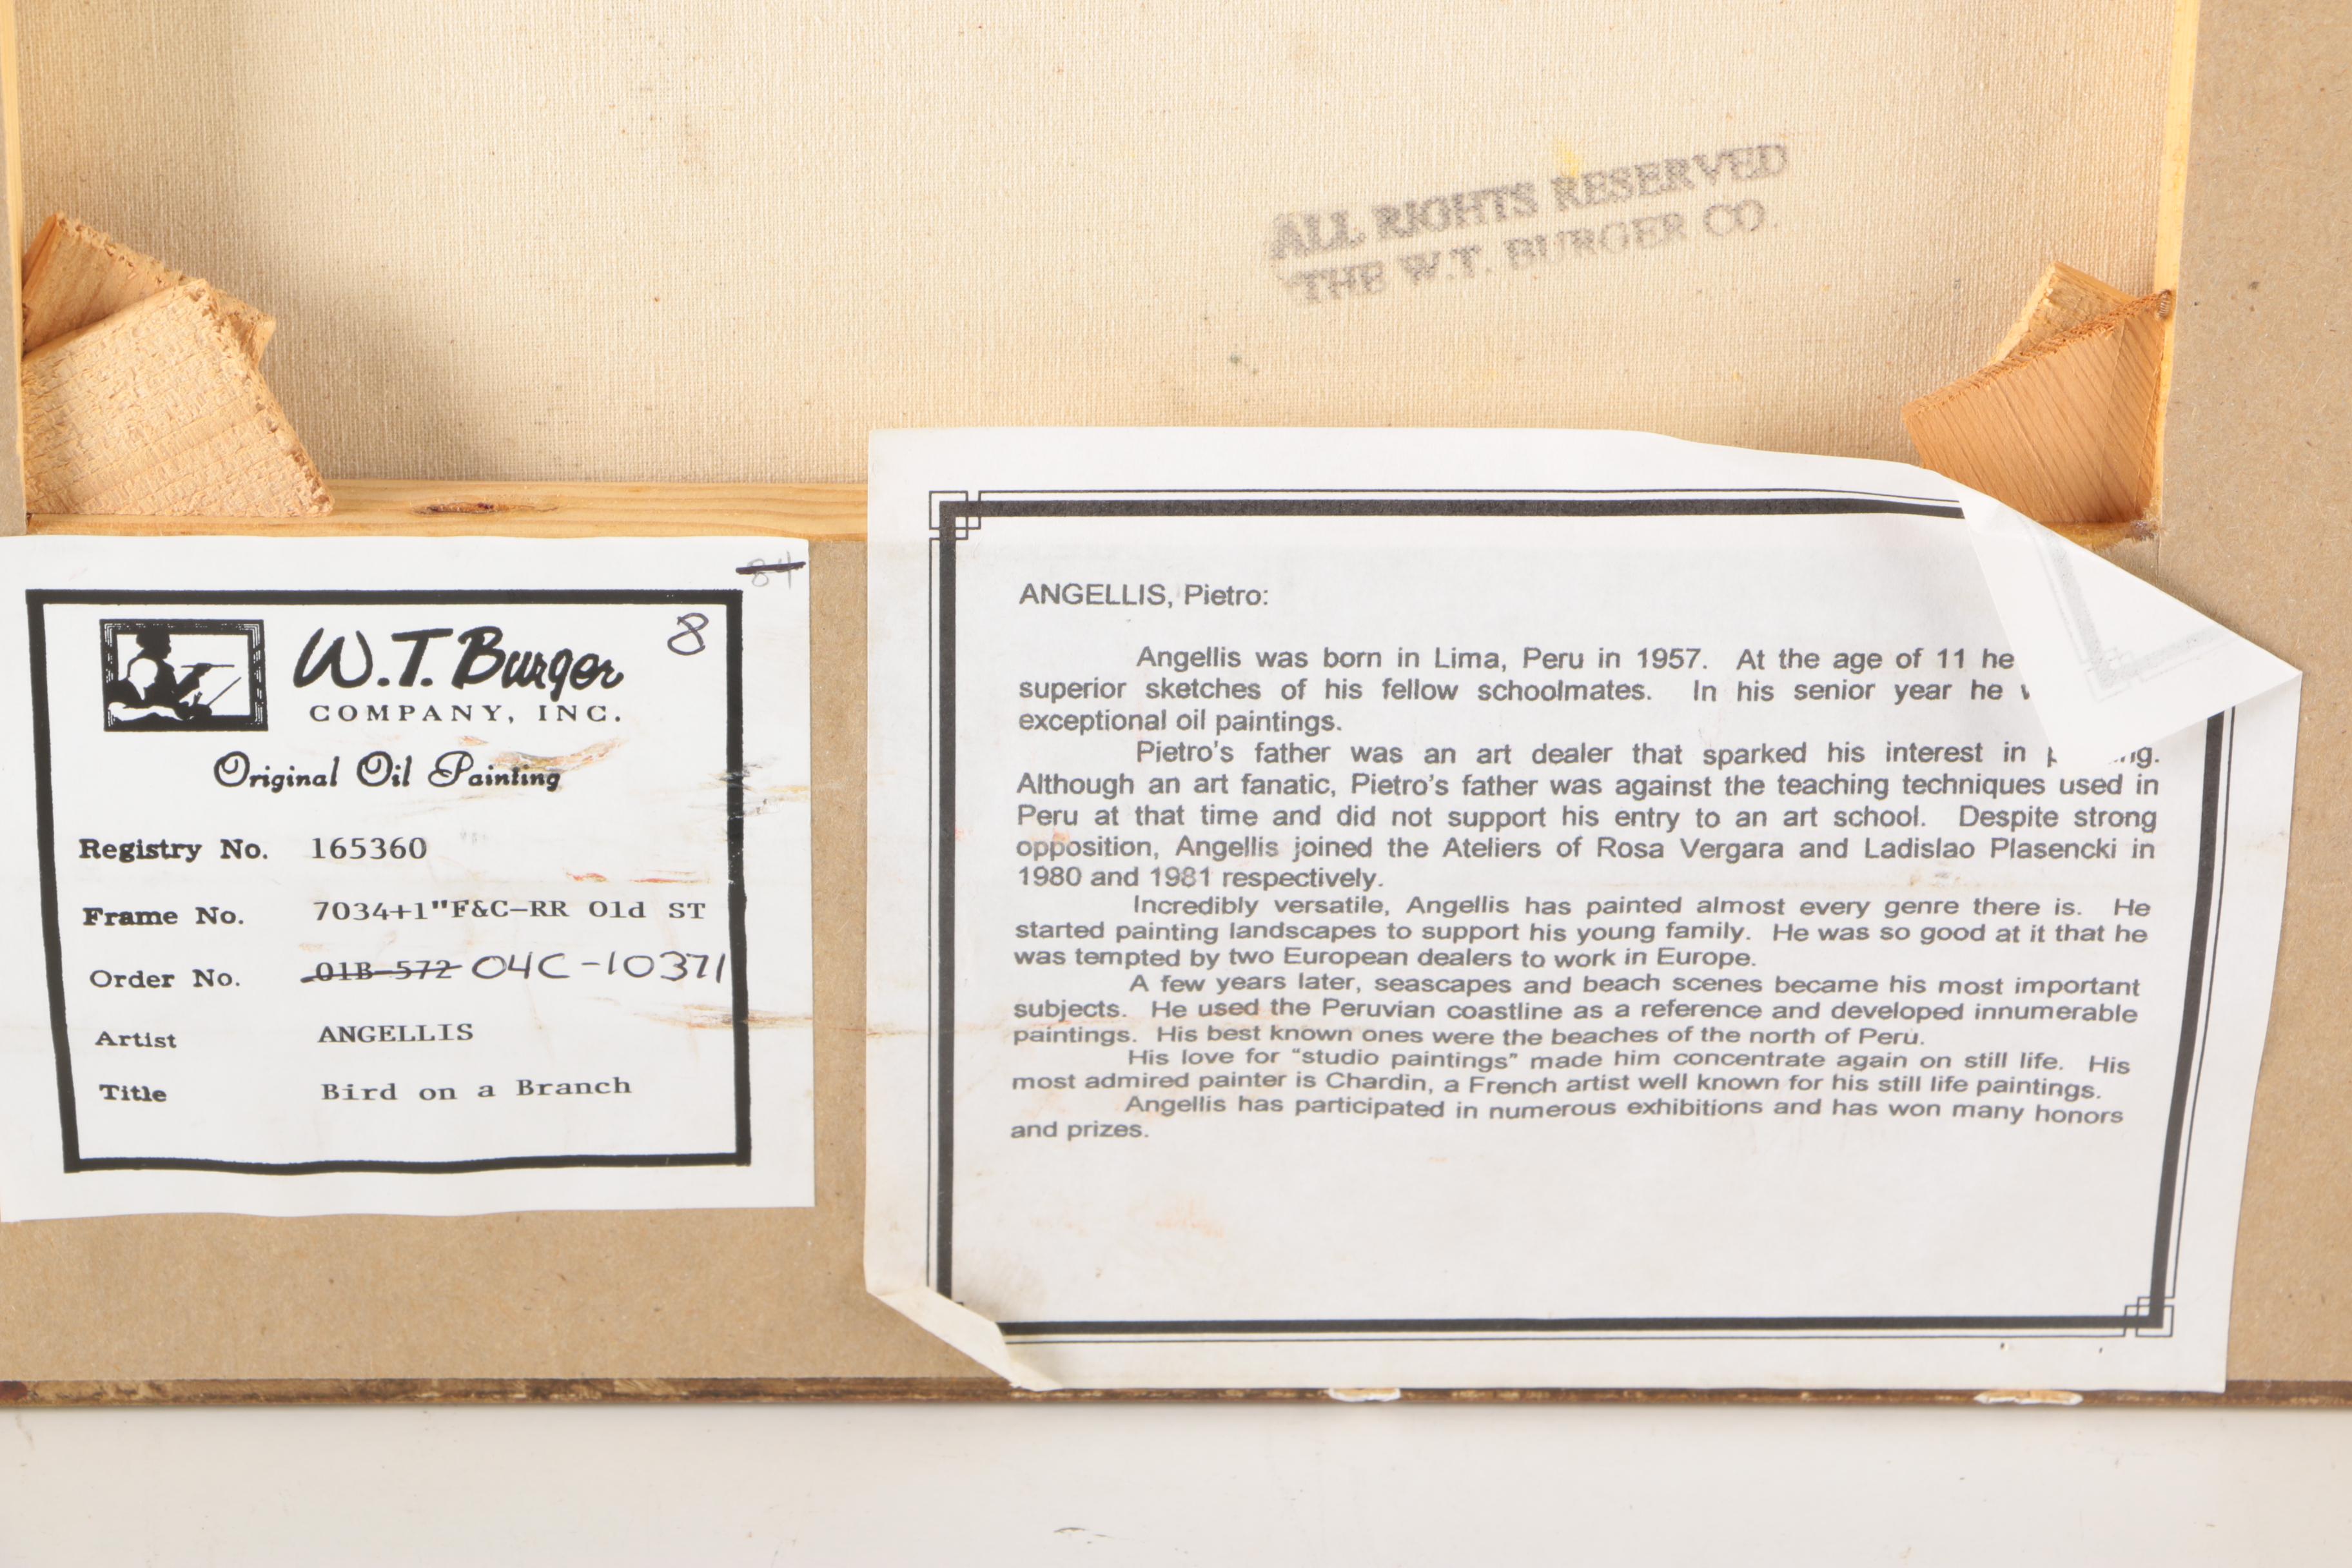 ALL RIGHTS RESERVED
THE W.T. BURGER CO.
84
8
W.T. Burger
COMPANY, INC.
Original Oil Painting
Registry No. 165360
Frame No. 7034+1"F&C-RR Old ST
Order No. 01B-572 04C-10371
Artist ANGELLIS
Title Bird on a Branch
ANGELLIS, Pietro:
Angellis was born in Lima, Peru in 1957. At the age of 11 he
superior sketches of his fellow schoolmates. In his senior year he
exceptional oil paintings.
Pietro's father was an art dealer that sparked his interest in
Although an art fanatic, Pietro's father was against the teaching techniques used in
Peru at that time and did not support his entry to an art school. Despite strong
opposition, Angellis joined the Ateliers of Rosa Vergara and Ladislao Plasencki in
1980 and 1981 respectively.
Incredibly versatile, Angellis has painted almost every genre there is. He
started painting landscapes to support his young family. He was so good at it that he
was tempted by two European dealers to work in Europe.
A few years later, seascapes and beach scenes became his most important
subjects. He used the Peruvian coastline as a reference and developed innumerable
paintings. His best known ones were the beaches of the north of Peru.
His love for "studio paintings" made him concentrate again on still life. His
most admired painter is Chardin, a French artist well known for his still life paintings.
Angellis has participated in numerous exhibitions and has won many honors
and prizes.